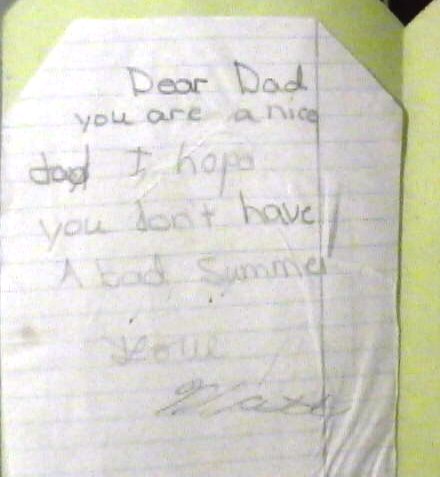 Dear Dad
you are a nice
dad I hope
you don't have
A bad Summer
Love